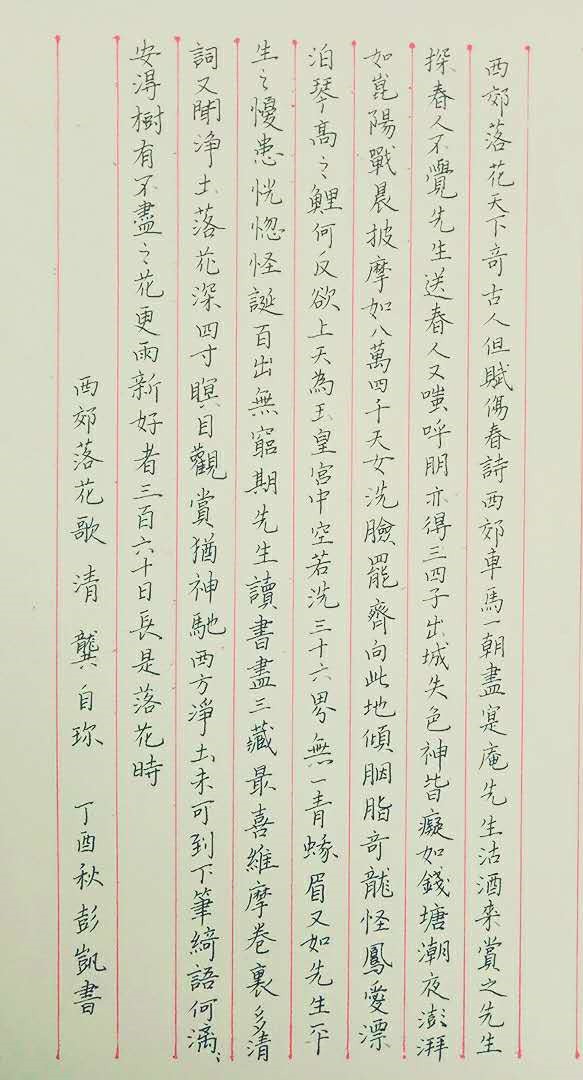 西郊落花天下奇古人但賦傷春詩西郊車馬一朝盡㝎庵先生沽酒来賞之先生
探春人不覺先生送春人又嗤呼朋亦得三四子出城失色神皆癡如錢塘潮夜澎湃
如昆陽戰晨披摩如八萬四千天女洗臉罷齊向此地傾胭脂奇龍怪鳳愛漂
泊琴高之鯉何反欲上天為玉皇宮中空若洗三十六界無一青蛾眉又如先生平
生之憂患恍惚怪誕百出無窮期先生讀書盡三藏最喜維摩卷裏多清
詞又聞淨土落花深四寸瞑目觀賞猶神馳西方淨土未可到下筆綺語何漓〻
安得樹有不盡之花更雨新好者三百六十日長是落花時
西郊落花歌 清 龔自珍 丁酉秋彭凱書